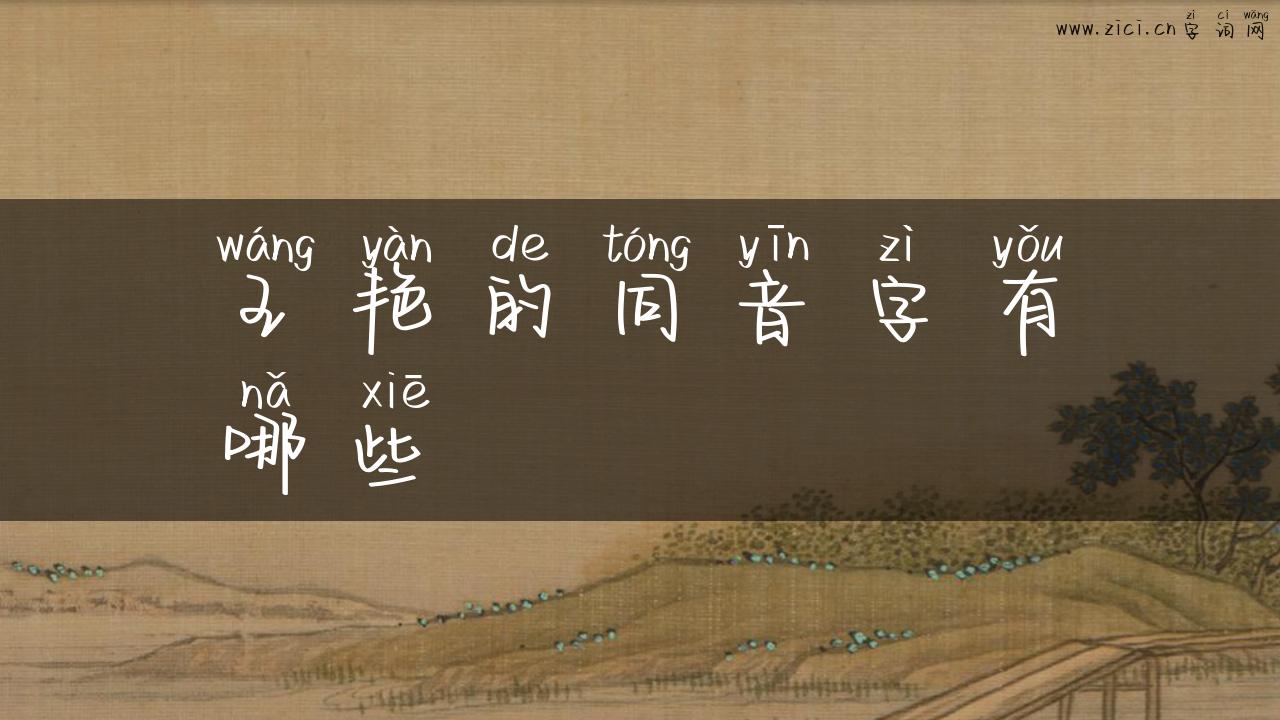 zì cí wǎng
www.zici.cn字词网
wáng yàn de tóng yīn zì yǒu
王艳的同音字有
nǎ xiē
哪些